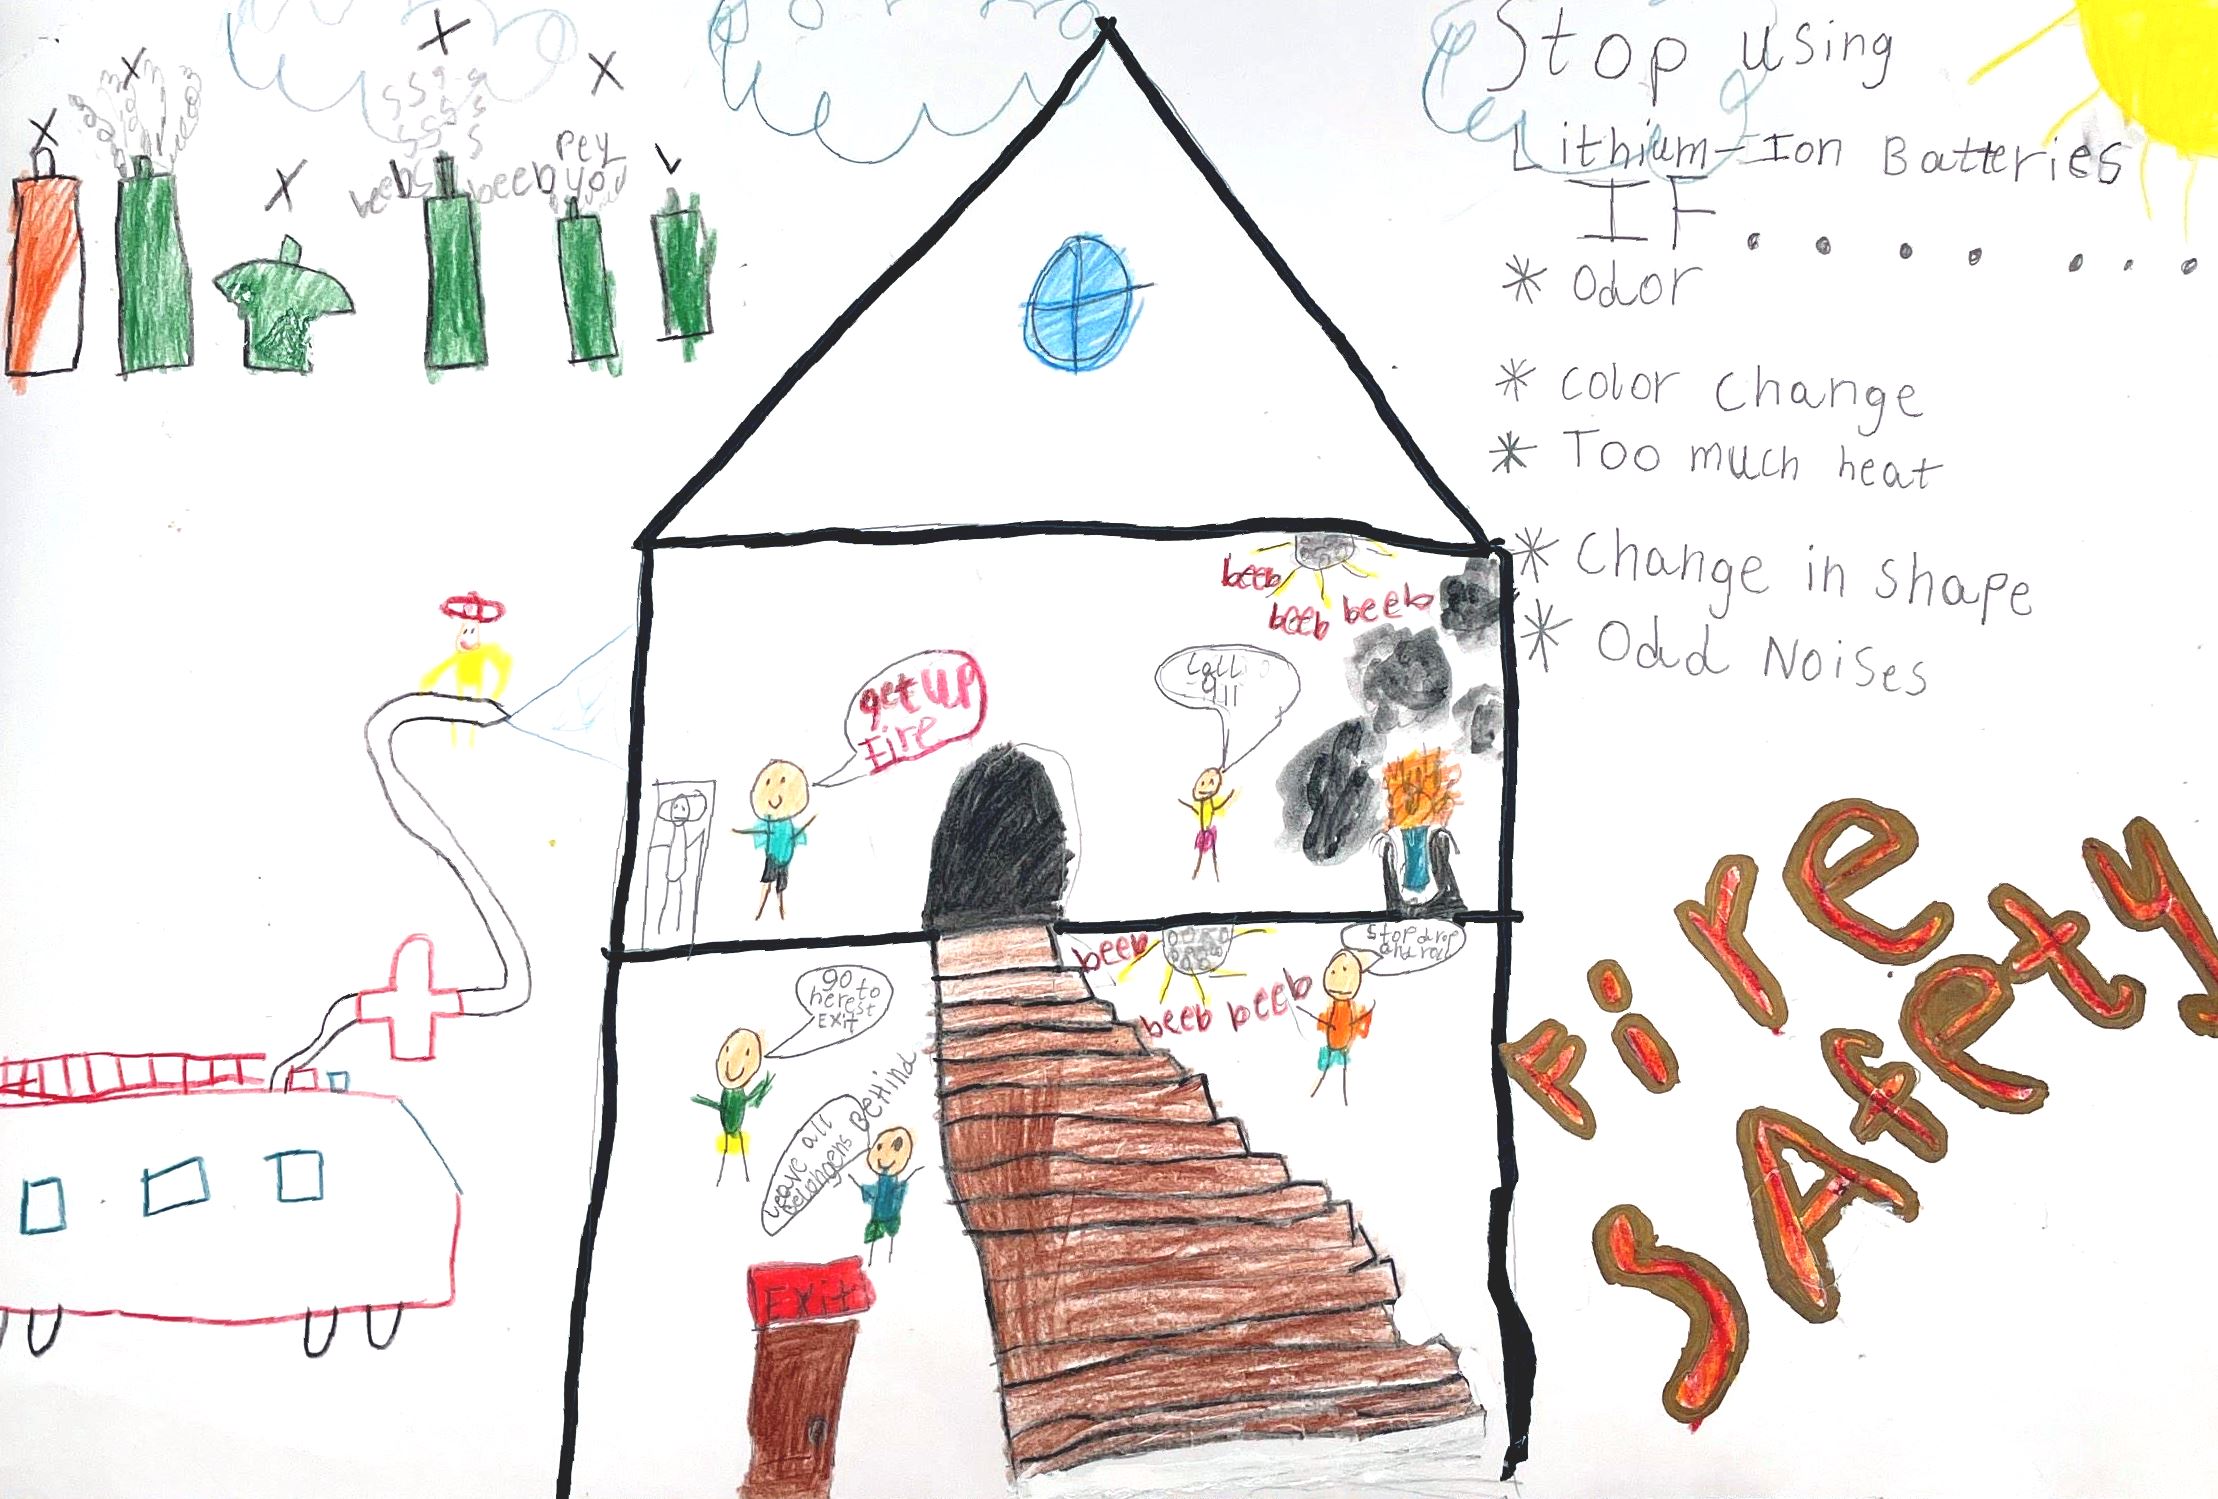 Stop using
Lithium-Ion Batteries
IF.......
* odor
* color change
* Too much heat
* Change in shape
* Odd Noises
beeb
beeb
pey
you
beeb
beeb beeb
get up
Fire
911
beeb
beeb beeb
Stop drop
and roll
go
here to
EXit
Leave all
Belongens BeHind
EXit
Fire
SAfety